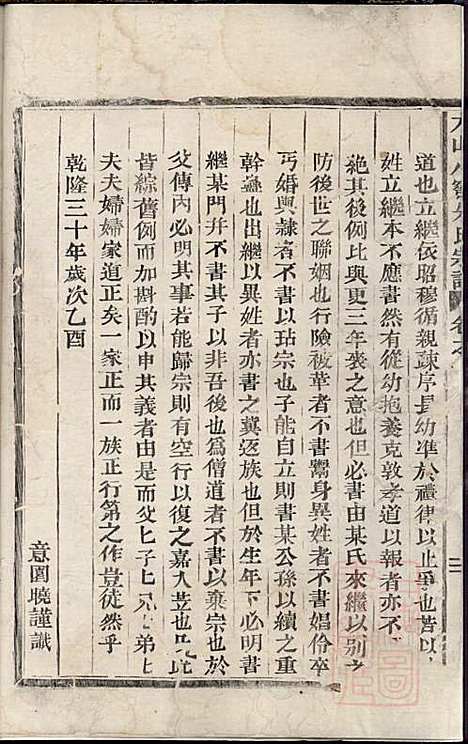 道也立繼依昭穆循親疎序長幼準於禮律以止爭也若以
姓立繼本不應書然有從幼抱養克敦孝道以報者亦不
絶其後例比與更三年喪之意也但必書由某氏來繼以别之
防後世之聯姻也行險被辜者不書鬻身異姓者不書娼伶卒
丐婚與隷者不書以玷宗也子能自立則書某公孫以續之重
幹蠱也出繼以異姓者亦書之冀返族也但於生年下必明書
繼某門幷不書子以非吾後也爲僧道者不書以棄宗也於
父傳内必明其事若能歸宗則有空行以復之嘉人益也凡此
皆綜舊例而加斟酌以申其義者由是而父父子子兄兄弟弟
夫夫婦婦家道正矣一家正而一族正行第之作豈徒然乎
乾隆三十年歲次乙酉
意園曉謹識